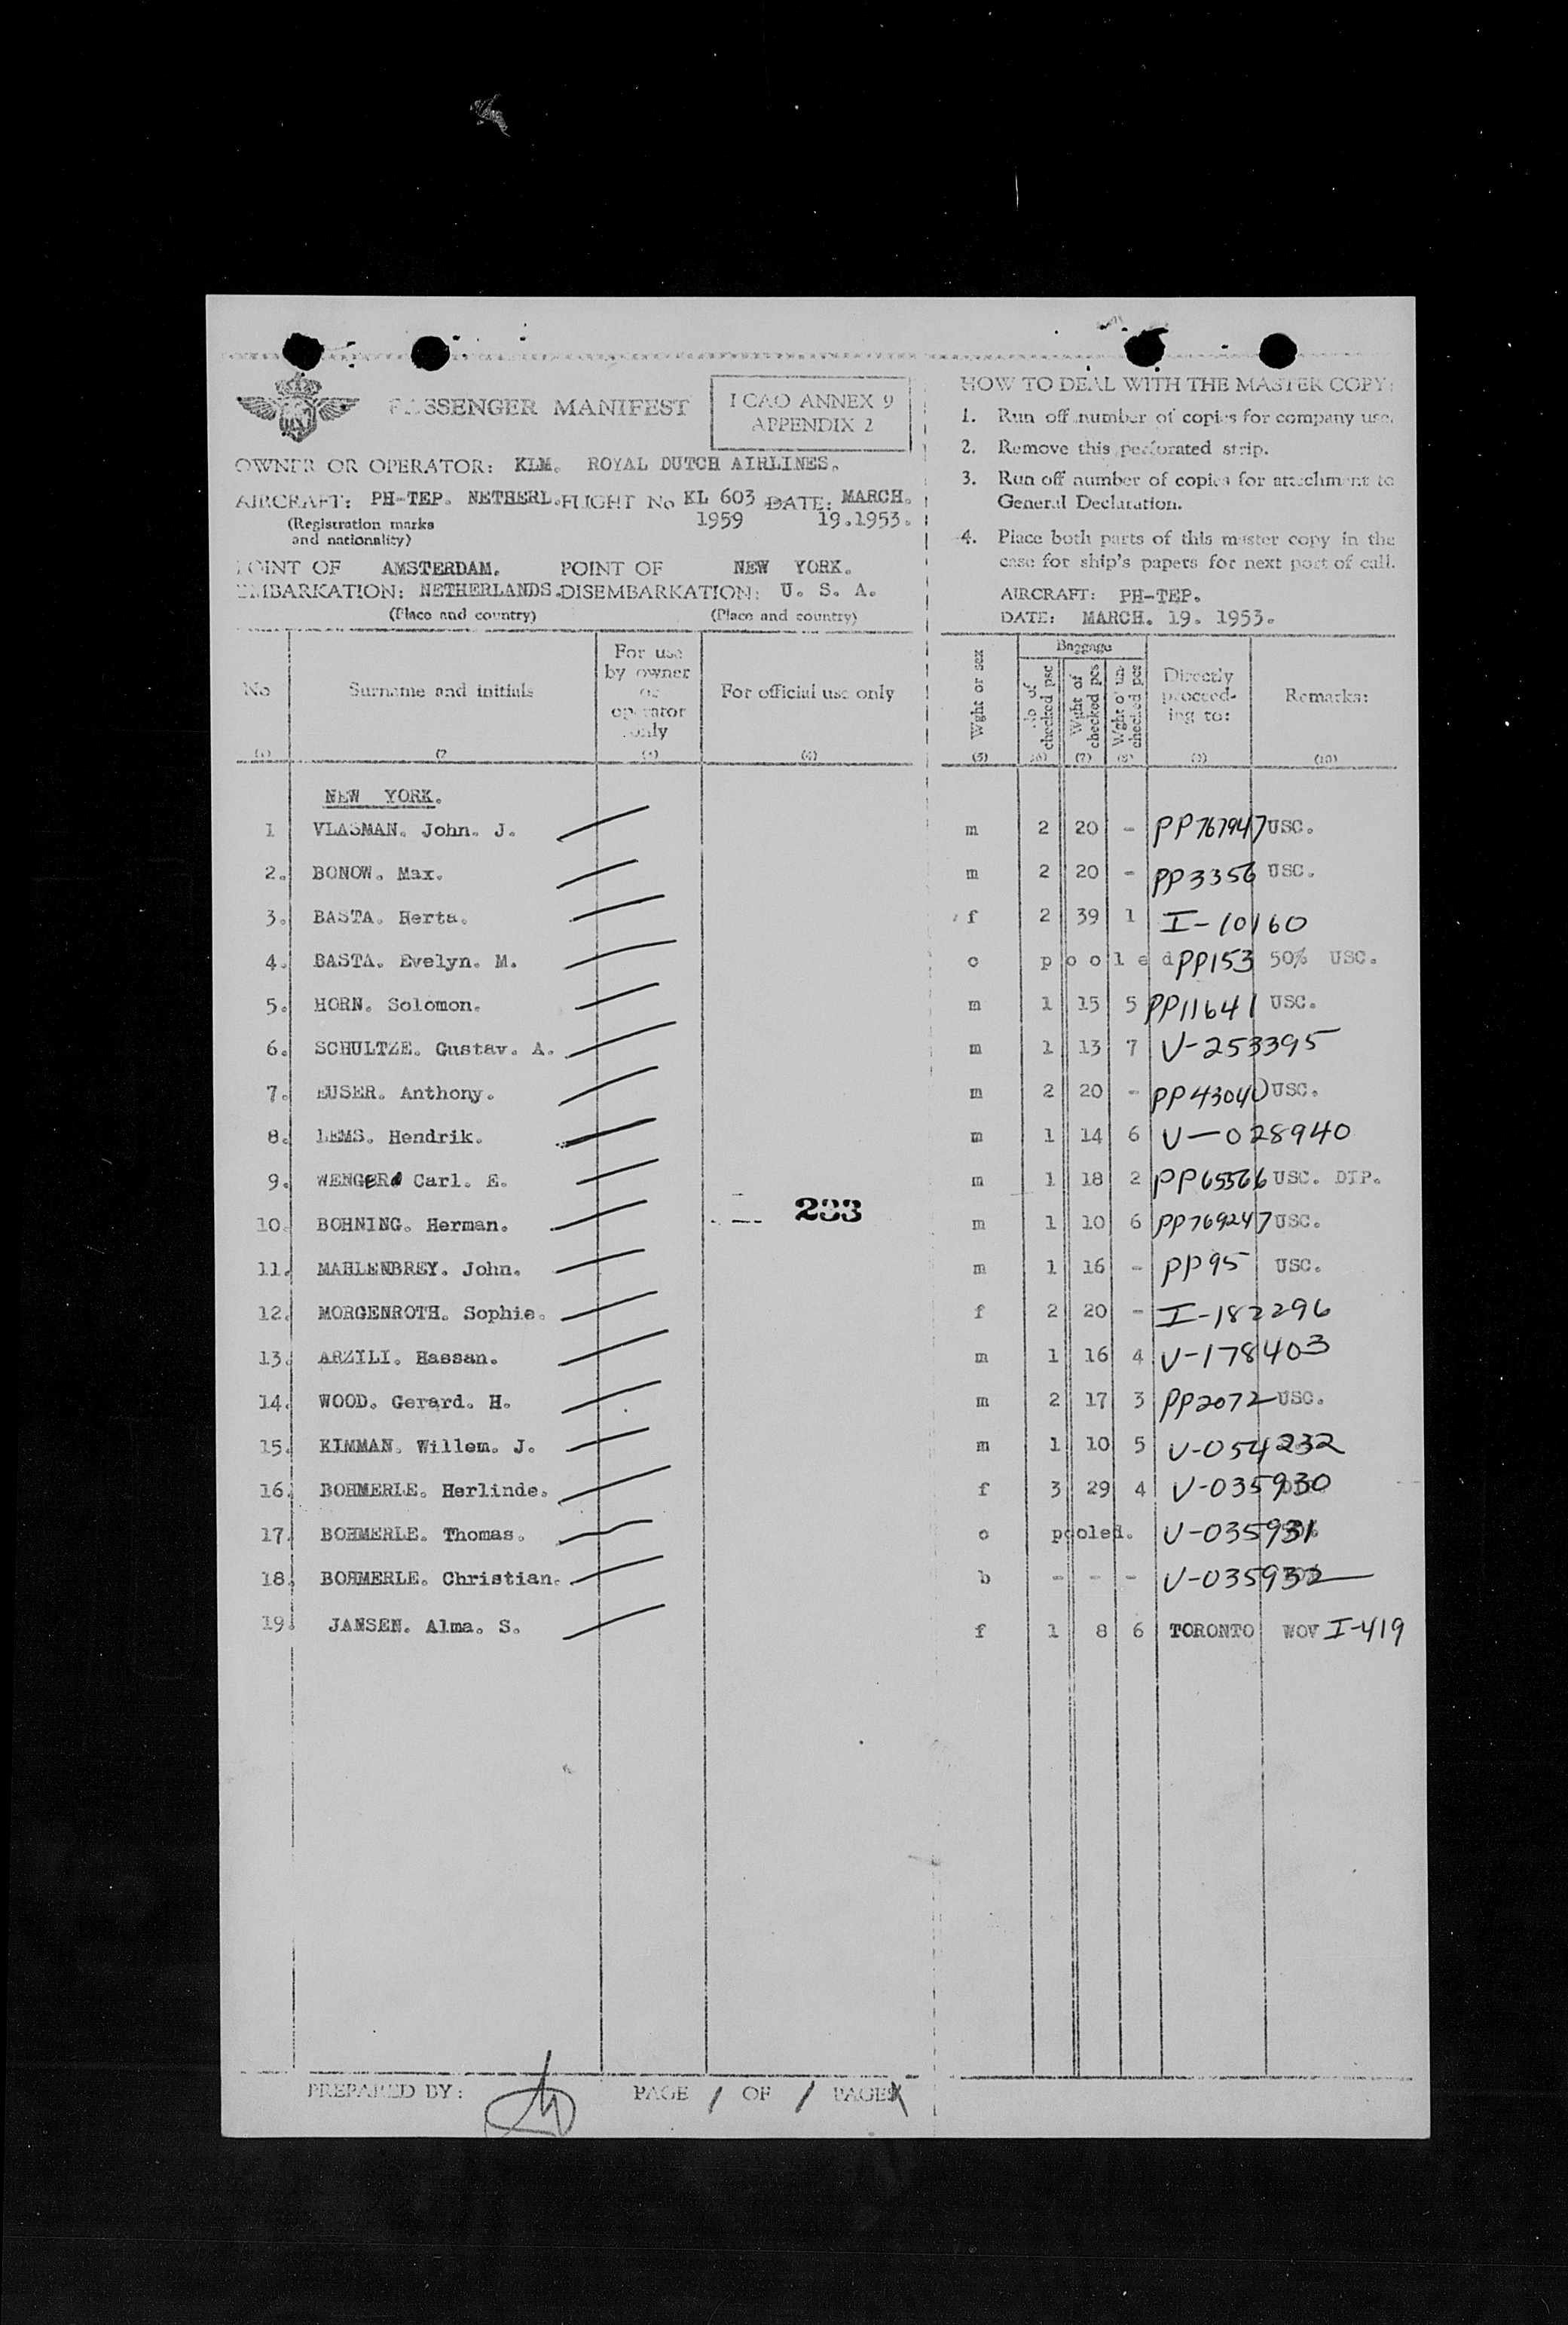 PASSENGER MANIFEST
ICAO ANNEX 9
APPENDIX 2
OWNER OR OPERATOR: KLM. ROYAL DUTCH AIRLINES.
AIRCRAFT: PH-TEP. NETHERL. FLIGHT No KL 603 DATE: MARCH.
(Registration marks 1959 19.1953.
and nationality)
POINT OF AMSTERDAM. POINT OF NEW YORK.
EMBARKATION: NETHERLANDS. DISEMBARKATION: U. S. A.
(Place and country) (Place and country)
HOW TO DEAL WITH THE MASTER COPY:
1. Run off number of copies for company use.
2. Remove this perforated strip.
3. Run off number of copies for attachment to
General Declaration.
4. Place both parts of this master copy in the
case for ship's papers for next port of call.
AIRCRAFT: PH-TEP.
DATE: MARCH. 19. 1953.
No Surname and initials For use by owner or operator only For official use only Wght or sex Baggage No of checked psc Wght of checked pcs Wght of un checked pcs Directly proceed-ing to: Remarks:
(1) (2 (3) (4) (5) (6) (7) (8) (9) (10)
NEW YORK.
1 VLASMAN. John. J. m 2 20 - PP767947 USC.
2. BONOW. Max. m 2 20 - PP3356 USC.
3. BASTA. Herta. f 2 39 1 I-10160
4. BASTA. Evelyn. M. c pooled PP153 50% USC.
5. HORN. Solomon. m 1 15 5 PP11641 USC.
6. SCHULTZE. Gustav. A. m 1 13 7 V-253395
7. EUSER. Anthony. m 2 20 - PP43040 USC.
8. LEMS. Hendrik. m 1 14 6 V-028940
9. WENGER Carl. E. m 1 18 2 PP65566 USC. DIP.
233
10. BOHNING. Herman. m 1 10 6 PP769247 USC.
11. MAHLENBREY. John. m 1 16 - PP95 USC.
12. MORGENROTH. Sophie. f 2 20 - I-182296
13. ARZILI. Hassan. m 1 16 4 V-178403
14. WOOD. Gerard. H. m 2 17 3 PP2072 USC.
15. KIMMAN. Willem. J. m 1 10 5 V-054232
16. BOHMERLE. Herlinde. f 3 29 4 V-035930
17. BOHMERLE. Thomas. c pooled. V-035931
18. BOHMERLE. Christian. b - - - V-035932
19. JANSEN. Alma. S. f 1 8 6 TORONTO WOV I-419
PREPARED BY: PAGE 1 OF 1 PAGES